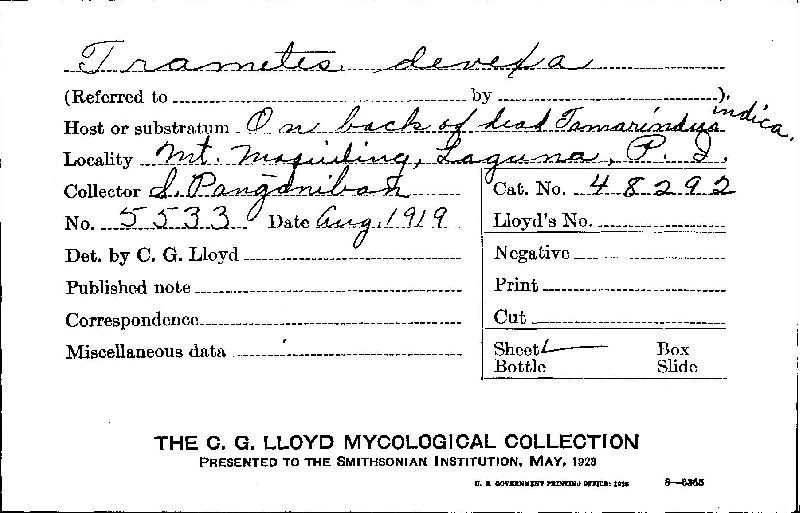 Trametes devexa
(Referred to by ).
Host or substratum On back of dead Tamarindus indica.
Locality Mt. Maquiling, Laguna, P. I.
Collector S. Panganiban Cat. No. 48292
No. 5533 Date Aug. 1919 Lloyd's No.
Det. by C. G. Lloyd Negative
Published note Print
Correspondence Cut
Miscellaneous data Sheet Box
Bottle Slide
THE C. G. LLOYD MYCOLOGICAL COLLECTION
PRESENTED TO THE SMITHSONIAN INSTITUTION, MAY, 1928
U. S. GOVERNMENT PRINTING OFFICE: 1928 8—6365